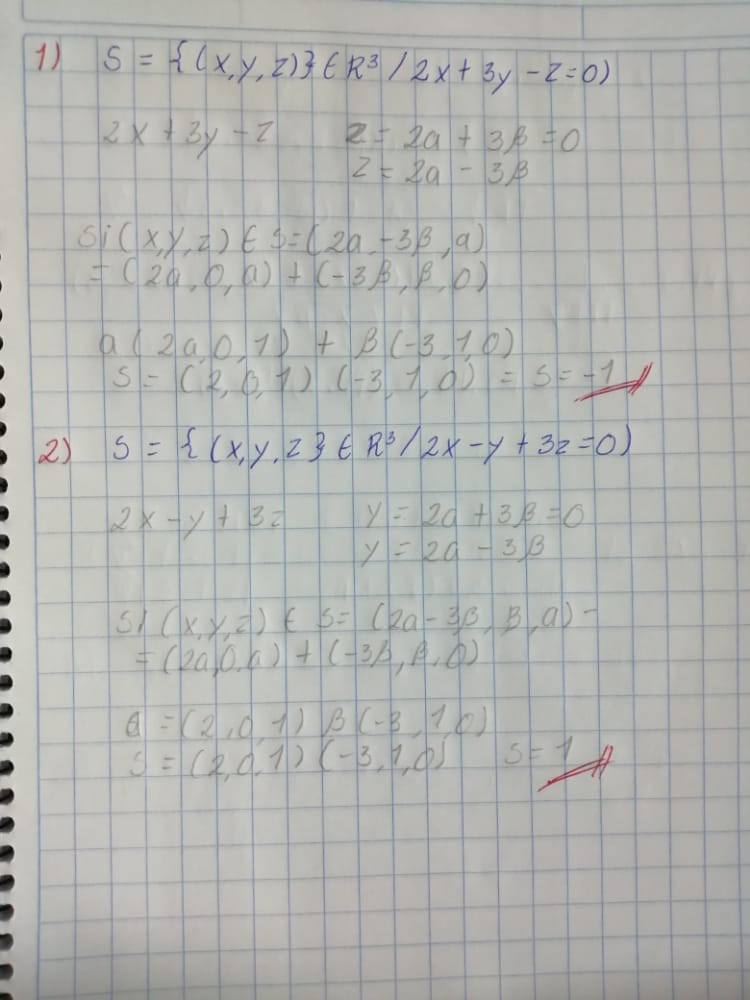 1) S = {(x,y,z)} ∈ R³ / 2x + 3y - z = 0)
2x + 3y - z z = 2a + 3β = 0
z = 2a - 3β
Si (x,y,z) ∈ S = (2a, -3β, a)
= (2a, 0, a) + (-3β, β, 0)
a (2a, 0, 1) + β (-3, 1, 0)
S = (2, 0, 1) (-3, 1, 0) = S = -1
2) S = {(x,y,z} ∈ R³ / 2x - y + 3z = 0)
2x - y + 3z y = 2a + 3β = 0
y = 2a - 3β
Si (x,y,z) ∈ S = (2a - 3β, β, a) -
= (2a, 0, a) + (-3β, β, 0)
a = (2, 0, 1) β (-3, 1, 0)
S = (2, 0, 1) (-3, 1, 0) S = 1